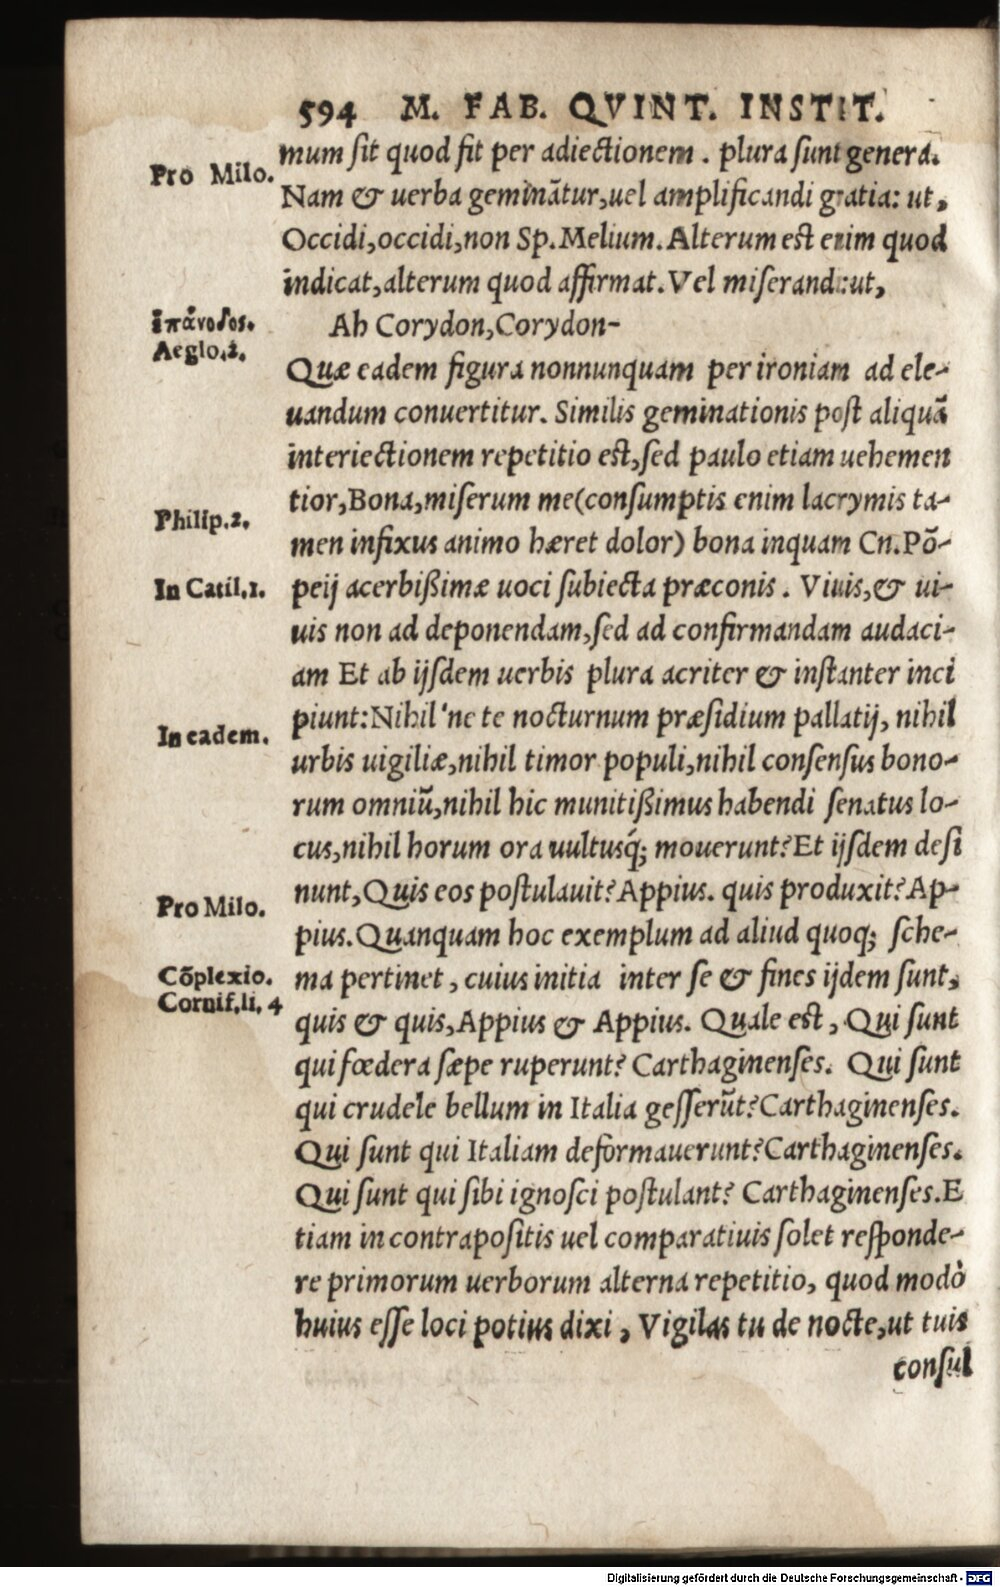 594 M. FAB. QVINT. INSTIT.
mum sit quod fit per adiectionem. plura sunt genera.
Pro Milo.
Nam & uerba geminātur,uel amplificandi gratia: ut,
Occidi,occidi,non Sp.Melium.Alterum est enim quod
indicat,alterum quod affirmat.Vel miserand:ut,
ἐπάνοδος.
Ah Corydon,Corydon-
Aeglo.2.
Quæ eadem figura nonnunquam per ironiam ad ele-
uandum conuertitur. Similis geminationis post aliquā
interiectionem repetitio est,sed paulo etiam uehemen
tior,Bona,miserum me(consumptis enim lacrymis ta-
Philip.2.
men infixus animo hæret dolor) bona inquam Cn.Pō-
In Catil.1.
peij acerbißimæ uoci subiecta præconis. Viuis,& ui-
uis non ad deponendam,sed ad confirmandam audaci-
am Et ab ijsdem uerbis plura acriter & instanter inci
piunt:Nihil'ne te nocturnum præsidium pallatij, nihil
In eadem.
urbis uigiliæ,nihil timor populi,nihil consensus bono-
rum omniū,nihil hic munitißimus habendi senatus lo-
cus,nihil horum ora uultusq́; mouerunt?Et ijsdem desi
nunt,Quis eos postulauit?Appius. quis produxit?Ap-
Pro Milo.
pius.Quanquam hoc exemplum ad aliud quoq; sche-
Cōplexio.
ma pertinet, cuius initia inter se & fines ijdem sunt,
Cornif.li. 4
quis & quis,Appius & Appius. Quale est, Qui sunt
qui fœdera sæpe ruperunt? Carthaginenses. Qui sunt
qui crudele bellum in Italia gesserūt?Carthaginenses.
Qui sunt qui Italiam deformauerunt?Carthaginenses.
Qui sunt qui sibi ignosci postulant? Carthaginenses.E
tiam in contrapositis uel comparatiuis solet responde-
re primorum uerborum alterna repetitio, quod modò
huius esse loci potius dixi, Vigilas tu de nocte,ut tuis
consul
Digitalisierung gefördert durch die Deutsche Forschungsgemeinschaft - DFG